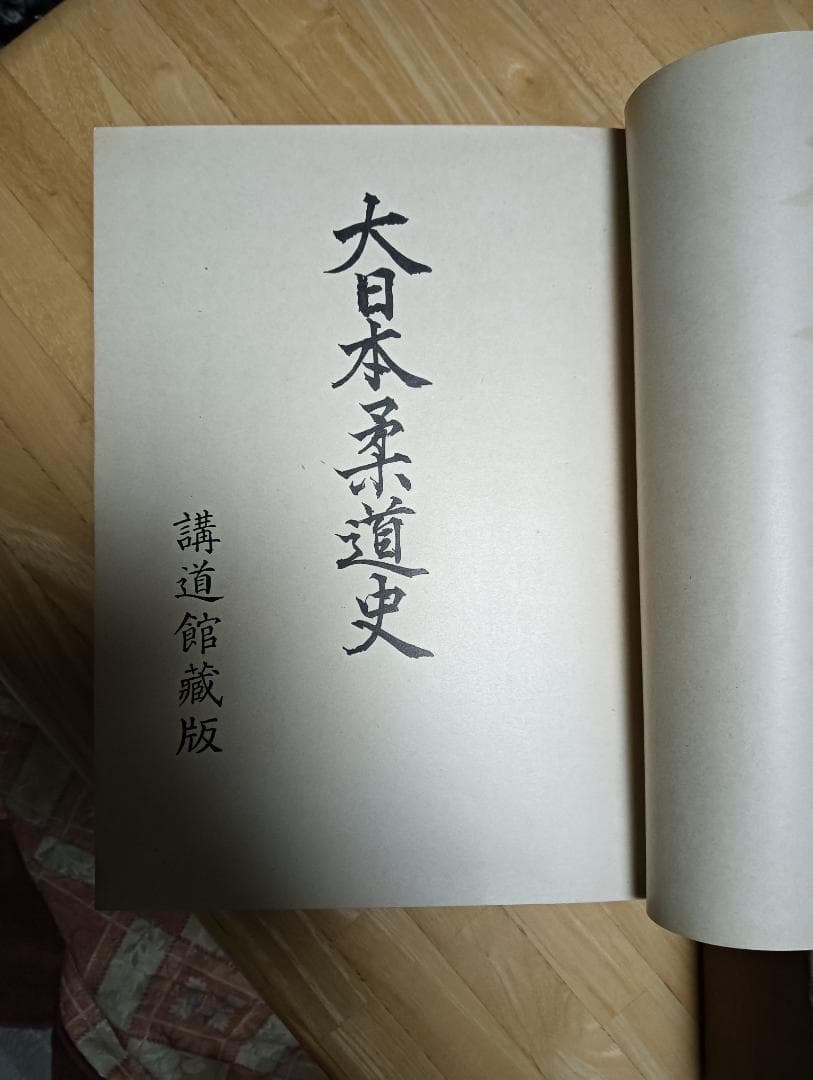 大日本柔道史
講道館藏版